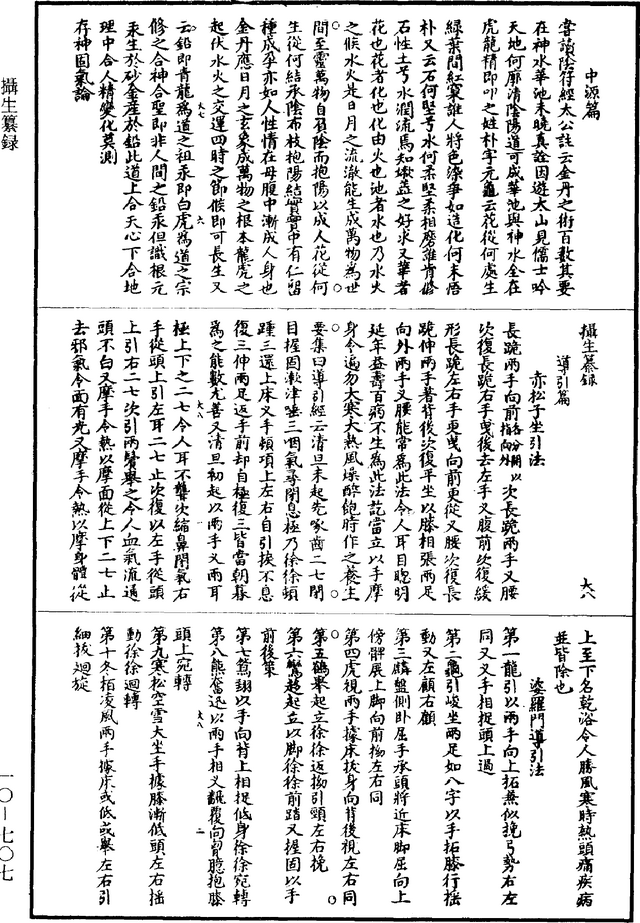 中源篇
嘗讀陰符經太公註云金丹之術百數其要
在神水華池未曉真詮因遊太山見儒士吟
天地何廓清陰陽道可成華池與神水全在
虎龍精即叩之姓朴字元龜云花從何處生
綠葉間紅窠誰人將色染爭如造化何未悟
朴又云石何堅兮水何柔堅柔相磨誰肯修
石性土兮水潤流焉知墩益之好求又華者
花也花者化也化由火也池者水也乃水火
之候水火是日月之流澈能生成萬物為世
間至靈萬物自負陰而抱陽以成人花從何
生從何結承陰布枝抱陽結實實中有仁留
種成孕亦如人性情在母腹中漸成人身也
金丹應日月之玄象成萬物之根本龍虎之
起伏水火之交運四時之節候即可長生又
云鉛即青龍為道之祖汞即白虎為道之宗
修之合神合聖即非人間之鉛汞但識根元
汞生於砂金產於鉛此道上合天心下合地
理中合人精變化莫測
存神固氣論
攝生纂録
導引篇
赤松子坐引法
長跪兩手向前各分開指向外以次長跪兩手叉腰
次復長跪右手曳後去左手叉腹前次復緩
形長跪左右手更曳向前更從叉腰次復長
跪伸兩手著背後次復平坐以膝相張兩足
向外兩手叉腰能常為此法令人耳目聰明
延年益壽百病不生為此法訖當立以手摩
身令遍勿大寒大熱風燥醉飽時作之養生
要集曰導引經云清旦未起先啄齒二七閉
目握固漱津唾三咽氣尋閉息極乃徐徐頓
踵三還上床叉手頓項上左右自引挨不息
復三伸兩足返手前却自極復三皆當朝暮
為之能數尤善又清旦初起以兩手叉兩耳
極上下之二七令人耳不聾次縮鼻閉氣右
手從頭上引左耳二七止次復以左手從頭
上引右二七次引兩鬢舉之令人血氣流通
頭不白又摩手令熱以摩面從上下二七止
去邪氣令面有光又摩手令熱以摩身體從
上至下名乾浴令人勝風寒時熱頭痛疾病
並皆除也
婆羅門導引法
第一龍引以兩手向上拓兼似挽弓勢右左
同又叉手相捉頭上過
第二龜引峻坐兩足如八字以手拓膝行搖
動又左顧右顧
第三麟盤側卧屈手承頭將近床脚屈向上
傍髀展上脚向前拗左右同
第四虎視兩手據床拔身向背後視左右同
第五鶴舉起立徐徐返拗引頸左右挽
第六鸞趨起立以脚徐徐前踏又握固以手
前後策
第七鴛翔以手向背上相捉低身徐徐宛轉
第八熊奮迅以兩手相叉翻覆向胷臆抱膝
頭上宛轉
第九寒松空雪大坐手據膝漸低頭左右摇
動徐徐迴轉
第十冬柏凌風兩手據床或低或舉左右引
細拔迴旋
攝生纂録
一〇—七〇七